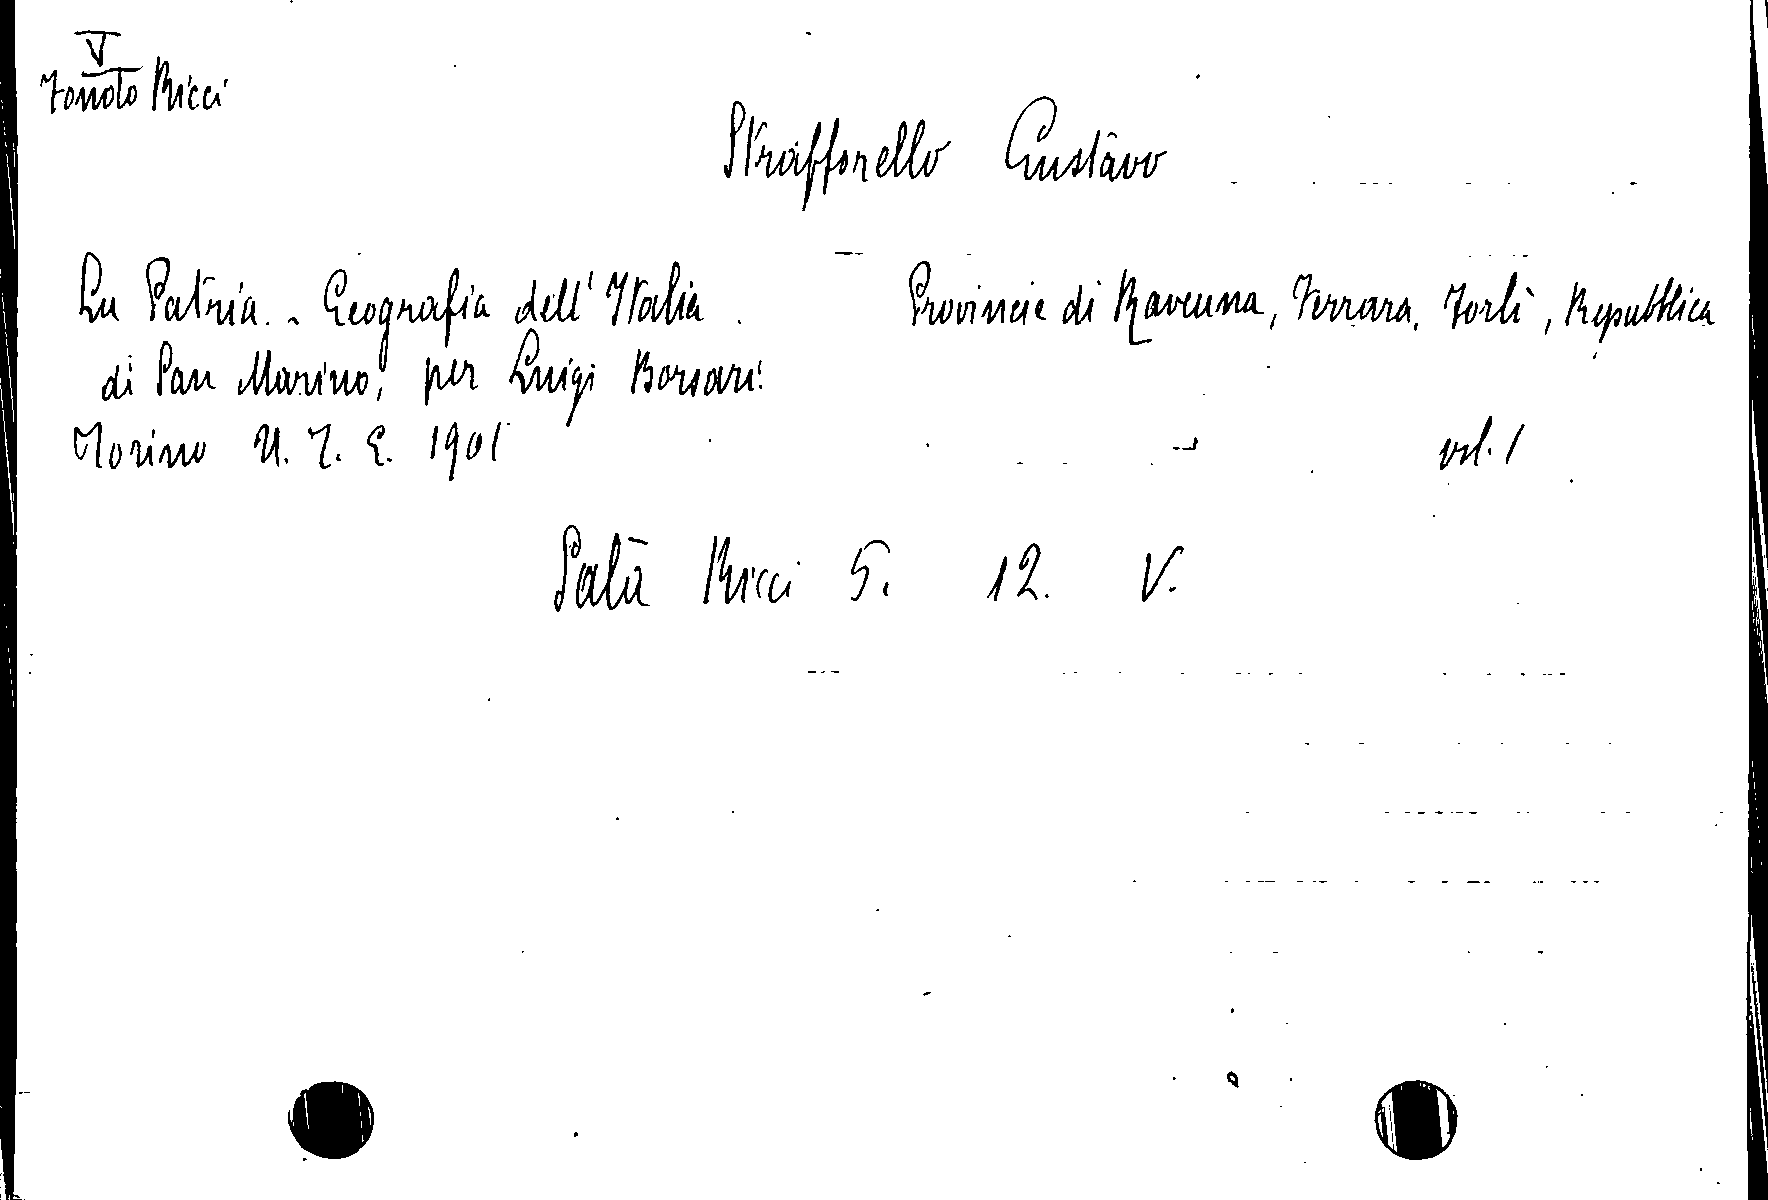 V
Fondo Ricci
Strafforello Gustavo
La Patria. - Geografia dell'Italia. Provincie di Ravenna, Ferrara, Forlì, Repubblica
di San Marino, per Luigi Borsari.
Torino U. T. E. 1901 vol. 1
Sala Ricci 5. 12. V.